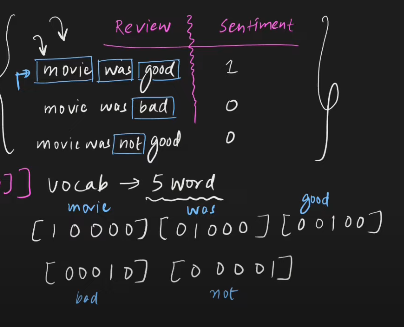 Review Sentiment
movie was good 1
movie was bad 0
movie was not good 0
]] vocab → 5 word
movie was good
[1 0 0 0 0] [0 1 0 0 0] [0 0 1 0 0]
[0 0 0 1 0] [0 0 0 0 1]
bad not